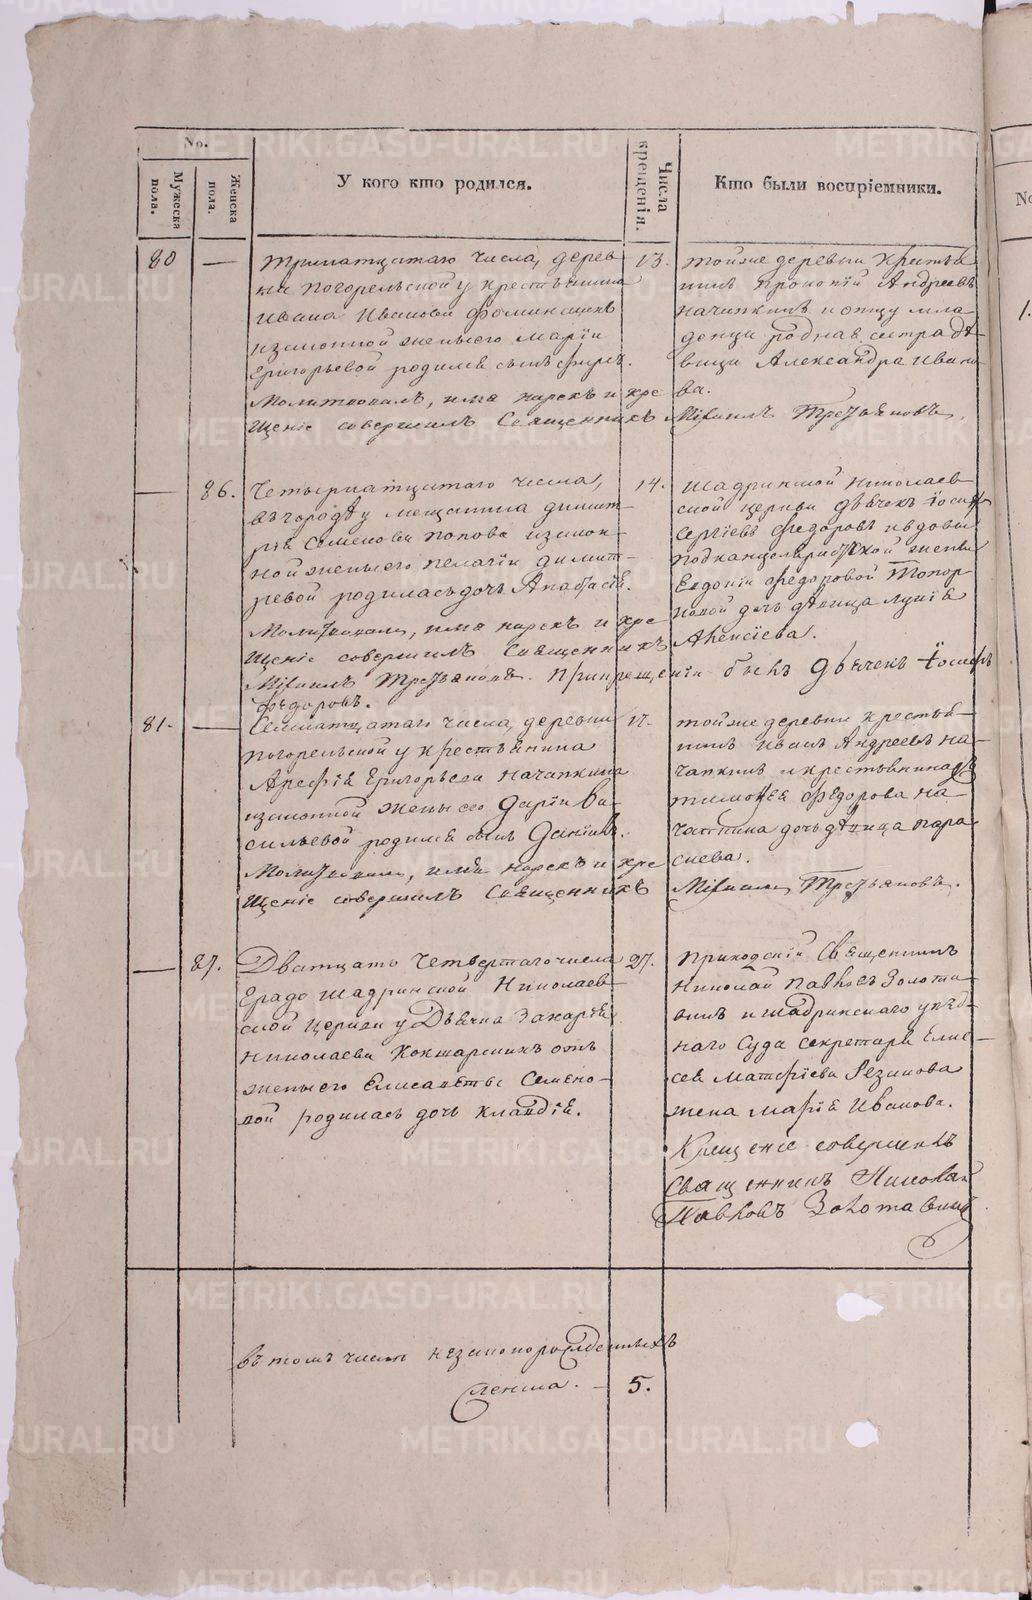 No.
Мужеска пола.
Женска пола.
У кого кто родился.
Числа крещенія.
Кто были воспріемники.
80 — Тринатцатаго числа, дерев- 13.
ни Погорельской у крестьянина
Ивана Иванова
изаконной жены его Маріи
Григорьевой родился сынъ
Молитвовалъ, имя нарекъ и кре
щеніе совершилъ Священникъ Михаилъ Третьяковъ.
тойже деревни крестья
нинъ Прокопій Андреевъ
Начапкинъ и отцу мла
денца родная сестра дѣ-
вица Александра Ивано
ва.
— 86. Четырнатцатаго числа, 14.
въ городѣ у мещанина Димит-
рія Семенова Попова изакон-
ной жены его Пелагіи Димит-
ревой родилась дочь Анастасія.
Молитвовалъ, имя нарекъ и кре
щеніе совершилъ Священникъ
Михаилъ Третьяковъ. При крещеніи былъ дьячекъ Іосифъ
Федоровъ.
Шадринской Николаев-
ской церкви дьячекъ Іосифъ
Сергіевъ Федоровъ и вдовы
подканцеляристской жены
Евдокіи Федоровой Топор-
ковой дочь дѣвица Лукія
Алексіева.
81. — Семнатцатаго числа, деревни 17.
Погорельской у крестьянина
Арефія Григорьева Начапкина
изаконной жены его Даріи Ва-
сильевой родился сынъ Даніилъ.
Молитвовалъ, имя нарекъ и кре
щеніе совершилъ Священникъ
тойже деревни крестья-
нинъ Иванъ Андреевъ На-
чапкинъ и крестьянина
Тимофея Федорова На-
чапкина дочь дѣвица Пара
скева.
Михаилъ Третьяковъ.
— 87. Дватцать четвертаго числа 27.
Града Шадринской Николаев-
ской церкви у Дьячка Захарія
Николаева Кокшарскихъ отъ
жены его Елисаветы Семено-
вой родилась дочь Клавдія.
Приходскій Священникъ
Николай Павловъ Золота-
винъ и Шадринскаго уѣзд-
наго Суда секретаря Елис-
сея Матфіева Резанова
жена Марія Иванова.
Крещеніе совершилъ
Священникъ Николай
Павловъ Золотавинъ
въ томъ числѣ незаконорожденныхъ
5.
METRIKI.GASO-URAL.RU